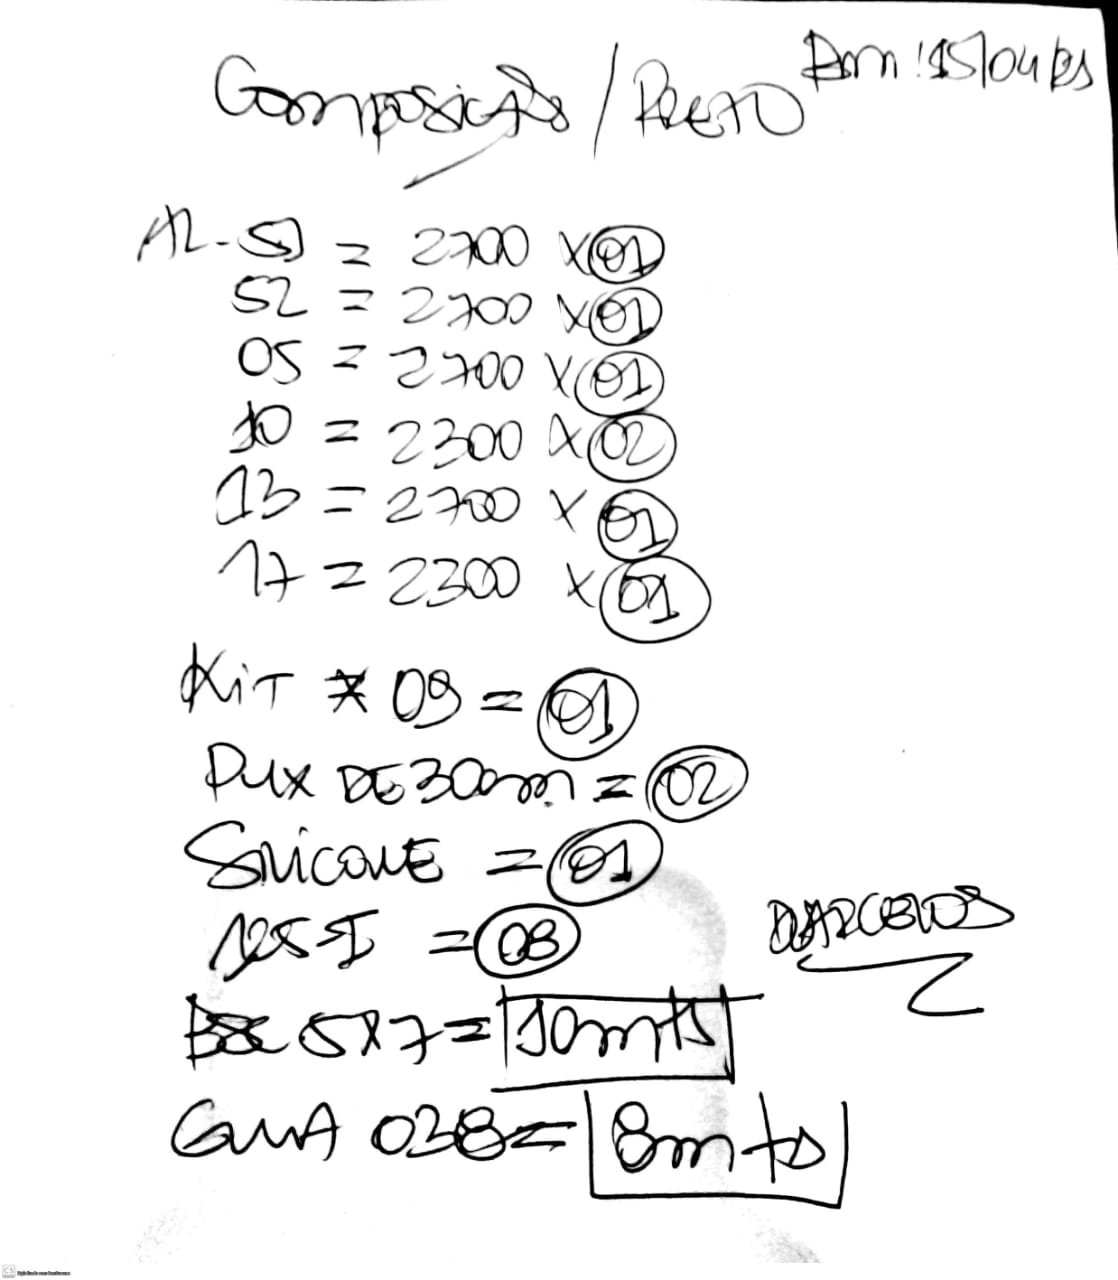 Composição / PRETO
Em: 15/04/21
AL-51 = 2700 X 01
52 = 2700 X 01
05 = 2700 X 01
10 = 2300 X 02
13 = 2700 X 01
17 = 2300 X 01
KiT * 09 = 01
PUX DE 30cm = 02
SiliCONE = 01
125-I = 08
5X7 = 10mts
GUIA 028 = 8mts